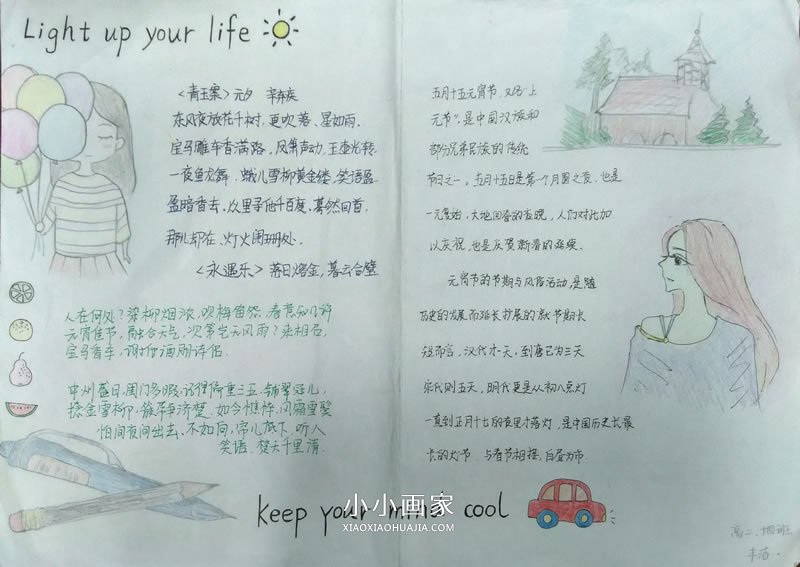 Light up your life
<青玉案>元夕 辛弃疾
东风夜放花千树,更吹落、星如雨.
宝马雕车香满路.凤箫声动,玉壶光转,
一夜鱼龙舞.蛾儿雪柳黄金缕,笑语盈
盈暗香去.众里寻他千百度,蓦然回首,
那儿却在、灯火阑珊处.
<永遇乐>落日熔金,暮云合璧
人在何处?染柳烟浓,吹梅笛怨,春意知几许
元宵佳节,融合天气,次第岂无风雨?来相召,
宝马香车,谢他酒朋诗侣.
中州盛日,闺门多暇,记得偏重三五.铺翠冠儿,
捻金雪柳,簇带争济楚.如今憔悴,风霜雪鬓
怕间夜间出去.不如向,帘儿底下,听人
笑语.
keep your mind cool
五月十五元宵节,又名"上
元节",是中国汉族和
部分兄弟民族的传统
节日之一,五月十五日是第一个月圆之夜.也是
一元复始,大地回春的夜晚,人们对此加
以庆祝.也是庆贺新春的延续.
元宵节的节期与风俗活动,是随
历史的发展而延长扩展的.就节期长
短而言,汉代才一天,到唐已为三天
宋代则五天,明代更是从初八点灯
一直到正月十七的夜里才落灯,是中国历史长最
长的灯节.与春节相接,白昼为市.
小小画家
XIAOXIAOHUAJIA.COM
高二、